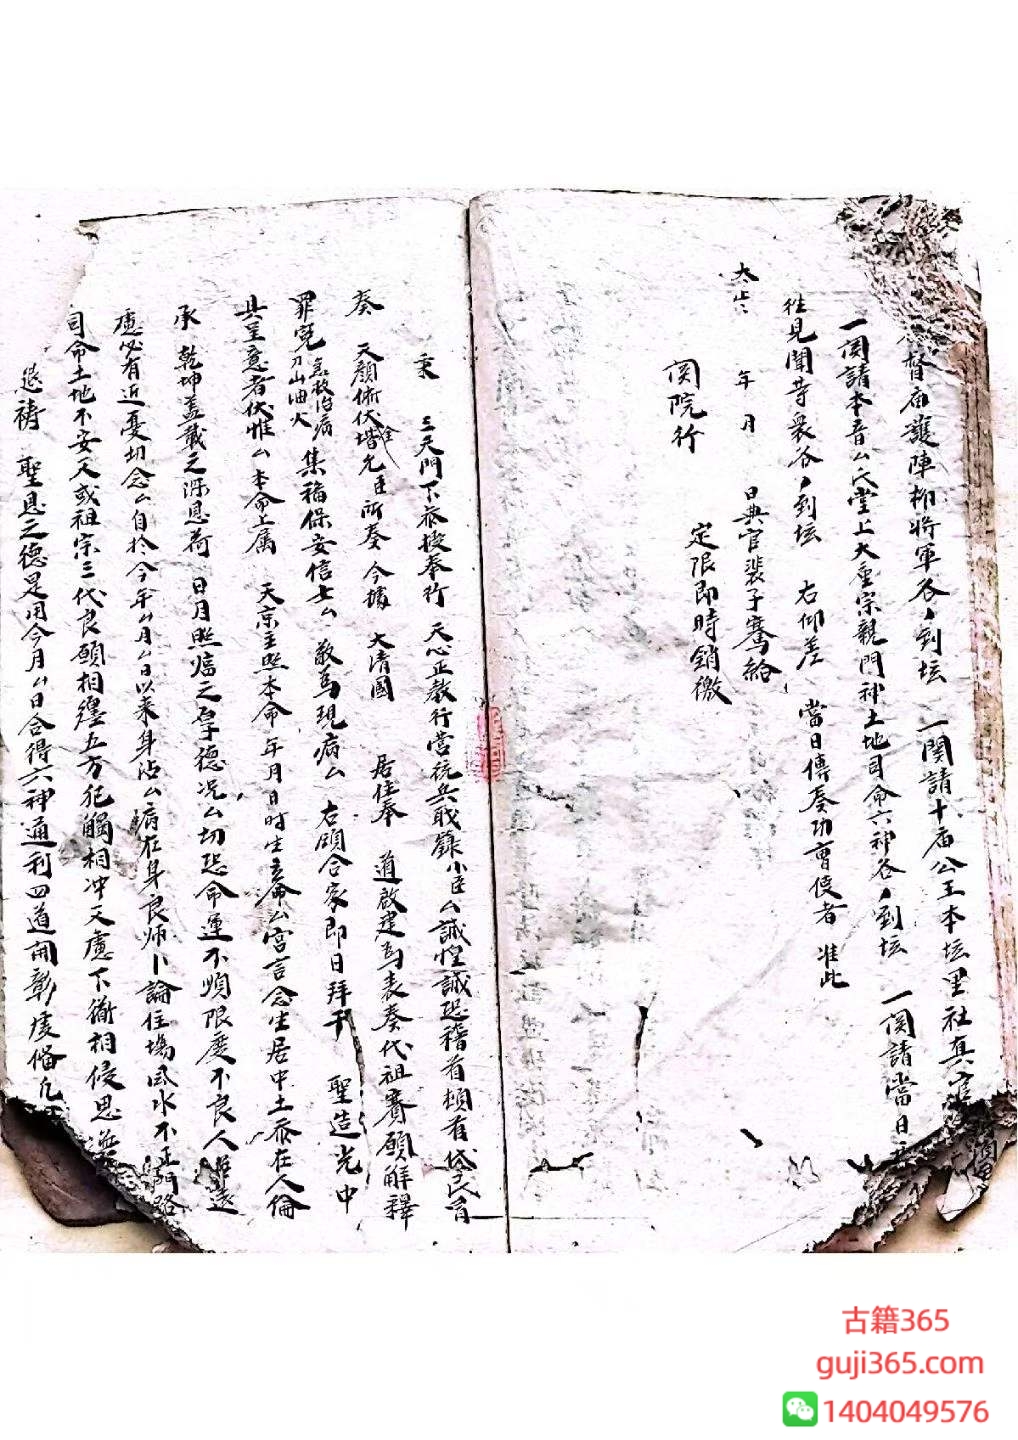 督庙護陣柳將軍各々到坛 一関請十庙公王本坛里社真官
一関請本音厶氏堂上大重宗親門神土地司命六神各々到坛 一関請當日
徃見聞等衆各々到坛 右仰差 當日傳奏功曹使者 准此
太歲 年 月 日典官裴子騫給
関院行 定限即時銷繳
秉 三天門下泰授奉行 天心正教行营統兵戝籙小臣厶誠惶誠恐稽首頓首
奏 天顏俯伏堦允臣所奏今據 大清國 居住奉 道啟建為表奏代祖賽願解釋
罪寃 急救治病 刀山油火 集福保安信士厶 敬為現病厶 右頋合家即日拜干 聖造光中
具呈意者伏惟厶本命上属 天京主照本命年月日時生主命厶宫言念生居中土忝在人倫
承 乾坤盖載之深恩荷 日月照臨之厚德况厶切恐命運不順限度不良人無遠
慮必有近憂切念厶自扵今年厶月厶日以来身沾厶病在身良师卜論住塲風水不正門路
司命土地不安又或祖宗三代良願相纏五方犯觸相冲又慮下衞相侵思
恳禱 聖恩之德是用今月厶日合得六神通利四道開彰虔俻
古籍365
guji365.com
1404049576